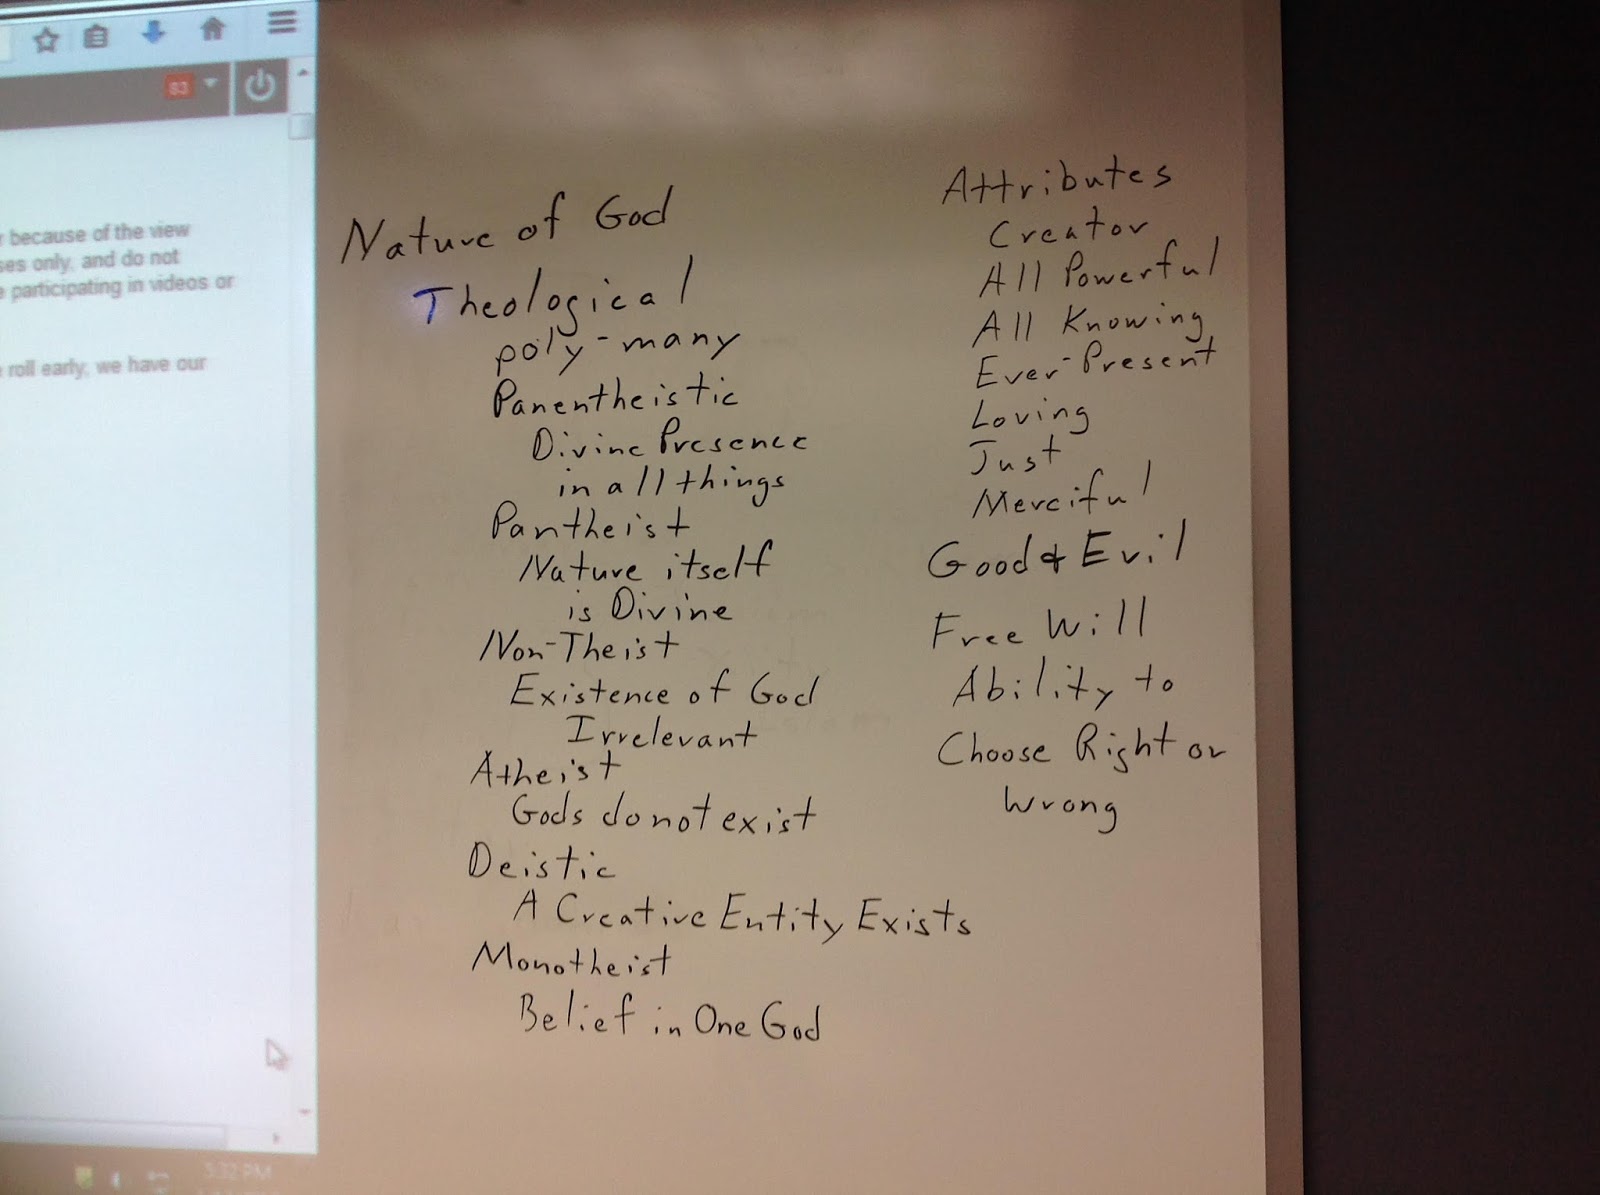 83
r because of the view
ses only, and do not
e participating in videos or
roll early, we have our
5:32 PM
Nature of God
Theological
poly-many
Panentheistic
Divine Presence
in all things
Pantheist
Nature itself
is Divine
Non-Theist
Existence of God
Irrelevant
Atheist
Gods do not exist
Deistic
A Creative Entity Exists
Monotheist
Belief in One God
Attributes
Creator
All Powerful
All Knowing
Ever-Present
Loving
Just
Merciful
Good & Evil
Free Will
Ability to
Choose Right or
Wrong